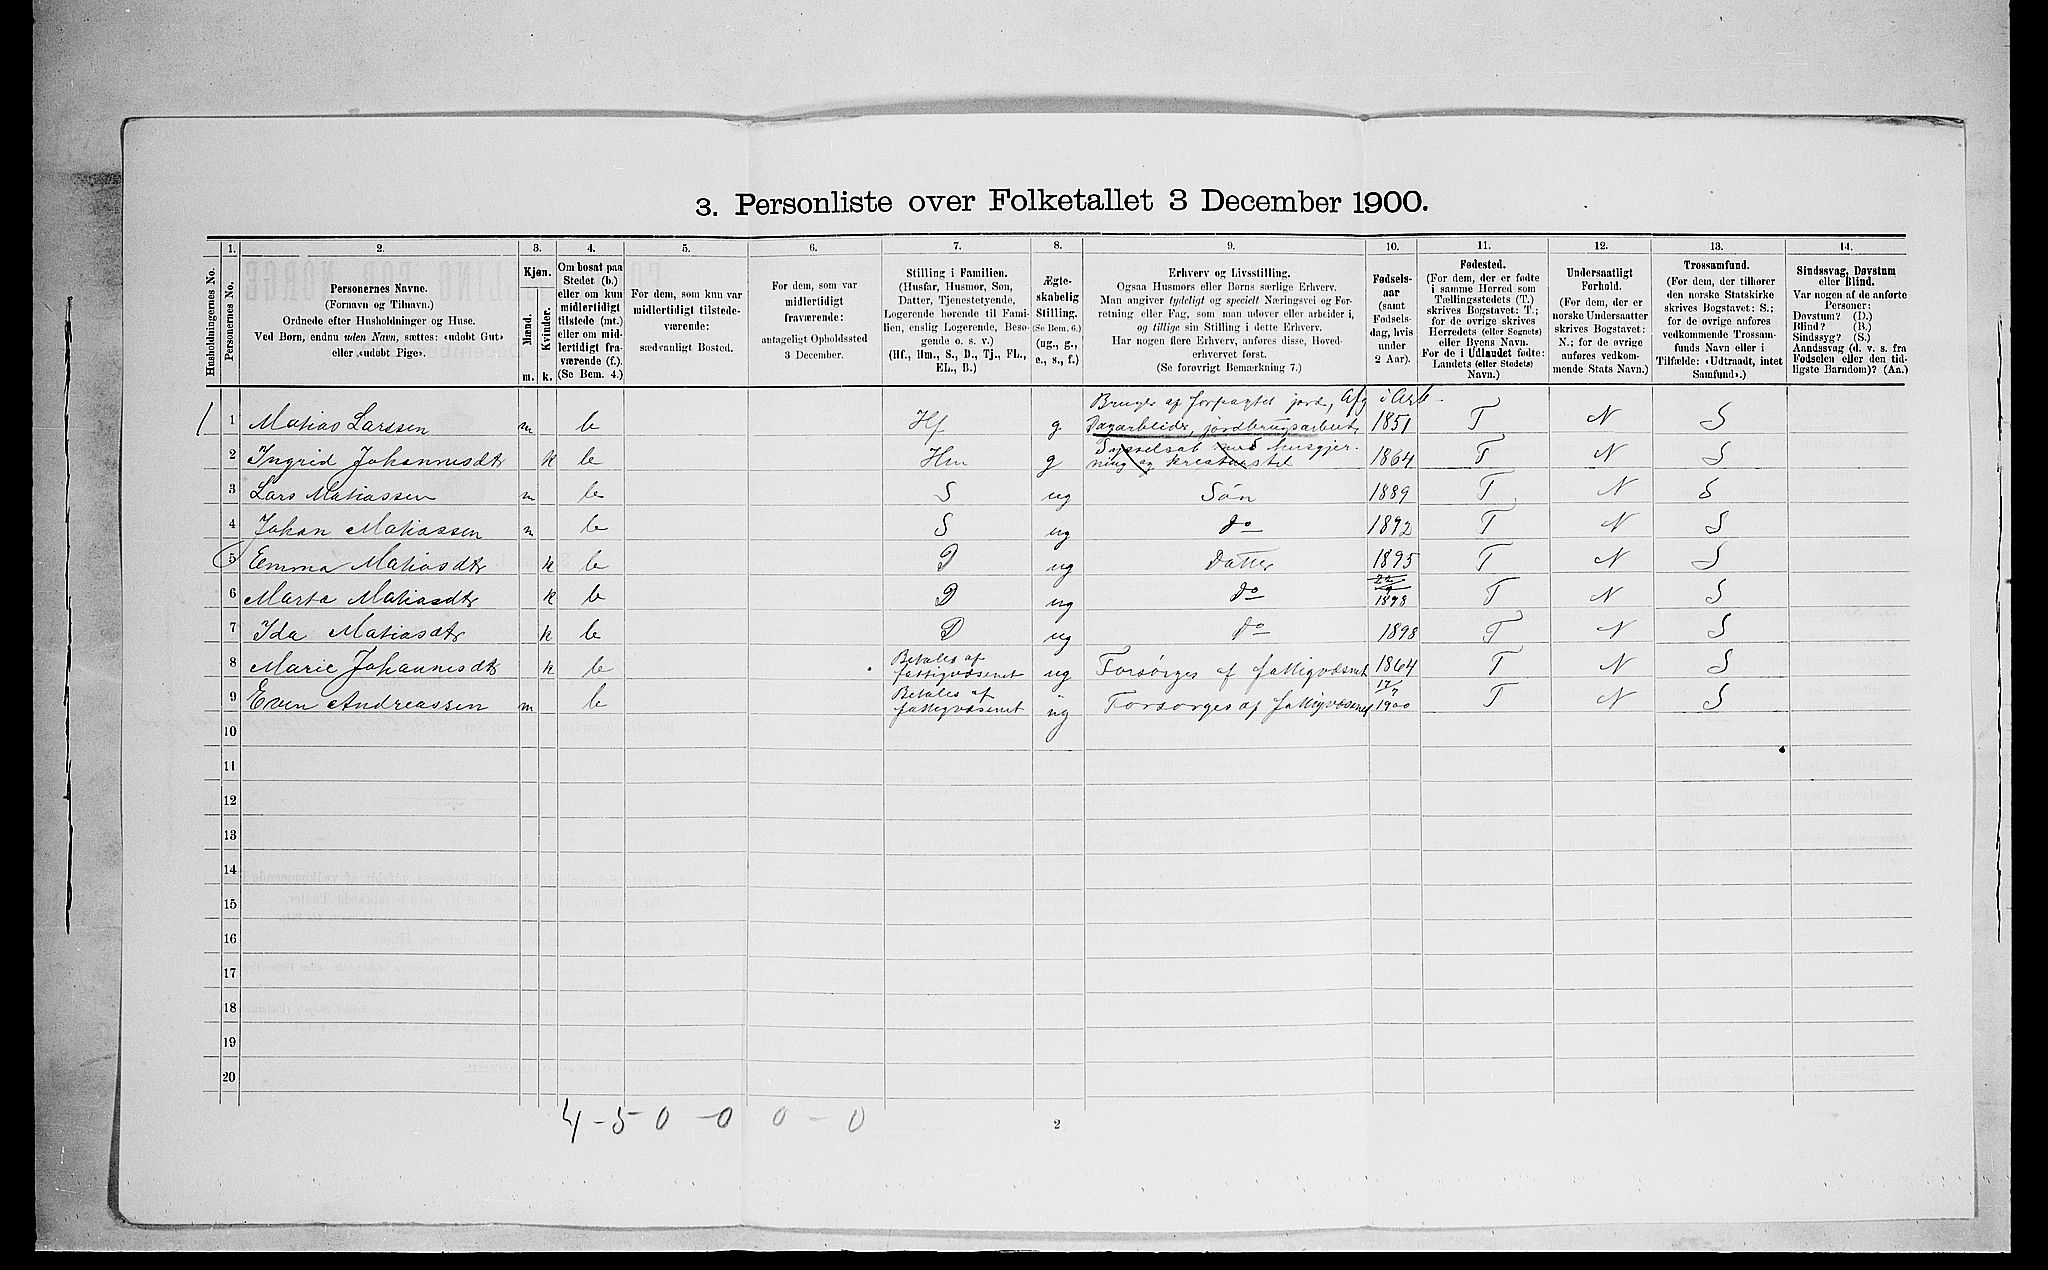 3. Personliste over Folketallet 3 December 1900.
1. 2. 3. 4. 5. 6. 7. 8. 9. 10. 11. 12. 13. 14.
Husholdningernes No.
Personernes No.
Personernes Navne.
(Fornavn og Tilnavn.)
Ordnede efter Husholdninger og Huse.
Ved Børn, endnu uden Navn, sættes: «udøbt Gut»
eller «udøbt Pige».
Kjøn.
Mænd.
Kvinder.
m. k.
Om bosat paa
Stedet (b.)
eller om kun
midlertidigt
tilstede (mt.)
eller om mid-
lertidigt fra-
værende (f.).
(Se Bem. 4.)
For dem, som kun var
midlertidigt tilstede-
værende:
sædvanligt Bosted.
For dem, som var
midlertidigt
fraværende:
antageligt Opholdssted
3 December.
Stilling i Familien.
(Husfar, Husmor, Søn,
Datter, Tjenestetyende,
Logerende hørende til Fami-
lien, enslig Logerende, Besø-
gende o. s. v.)
(Hf., Hm., S., D., Tj., FL.,
EL., B.)
Ægte-
skabelig
Stilling.
(Se Bem. 6.)
(ug., g.,
e., s., f.)
Erhverv og Livsstilling.
Ogsaa Husmors eller Børns særlige Erhverv.
Man angiver tydeligt og specielt Næringsvei og For-
retning eller Fag, som man udøver eller arbeider i,
og tillige sin Stilling i dette Erhverv.
Har nogen flere Erhverv, anføres disse, Hoved-
erhvervet først.
(Se forøvrigt Bemærkning 7.)
Fødsels-
aar
(samt
Fødsels-
dag, hvis
under
2 Aar).
Fødested.
(For dem, der er fødte
i samme Herred som
Tællingsstedets (T.)
skrives Bogstavet: T.;
for de øvrige skrives
Herredets (eller Sognets)
eller Byens Navn.
For de i Udlandet fødte:
Landets (eller Stedets)
Navn.)
Undersaatligt
Forhold.
(For dem, der er
norske Undersaatter
skrives Bogstavet:
N.; for de øvrige
anføres vedkom-
mende Stats Navn.)
Trossamfund.
(For dem, der tilhører
den norske Statskirke
skrives Bogstavet: S.;
for de øvrige anføres
vedkommende Trossam-
funds Navn eller i
Tilfælde: «Udtraadt, intet
Samfund».)
Sindssvag, Døvstum
eller Blind.
Var nogen af de anførte
Personer:
Døvstum? (D.)
Blind? (B.)
Sindssyg? (S.)
Aandssvag (d. v. s. fra
Fødselen eller den tid-
ligste Barndom)? (Aa.)
Bruger af forpagtet jord, Afg i Arb.
1 Matias Larssen m b Hf g Dagarbeider, jordbrugsarbeide 1851 T N S
2 Ingrid Johannesdtr k b Hm g Sysselsat med husgjer-
ning og kreaturstel 1864 T N S
3 Lars Matiassen m b S ug Søn 1889 T N S
4 Johan Matiassen m b S ug do 1892 T N S
5 Emma Matiasdtr k b D ug Datter 1895 T N S
6 Marta Matiasdtr k b D ug do 1898 T N S
7 Ida Matiasdtr k b D ug do 1898 T N S
8 Marie Johannesdtr k b Betales af
fattigvæsenet ug Forsørges af fattigvæsnet 1864 T N S
9 Even Andreassen m b Betales af
fattigvæsenet ug Forsørges af fattigvæsnet 17/7
1900 T N S
10
11
12
13
14
15
16
17
18
19
20
4 - 5 0 - 0 0 - 0
2